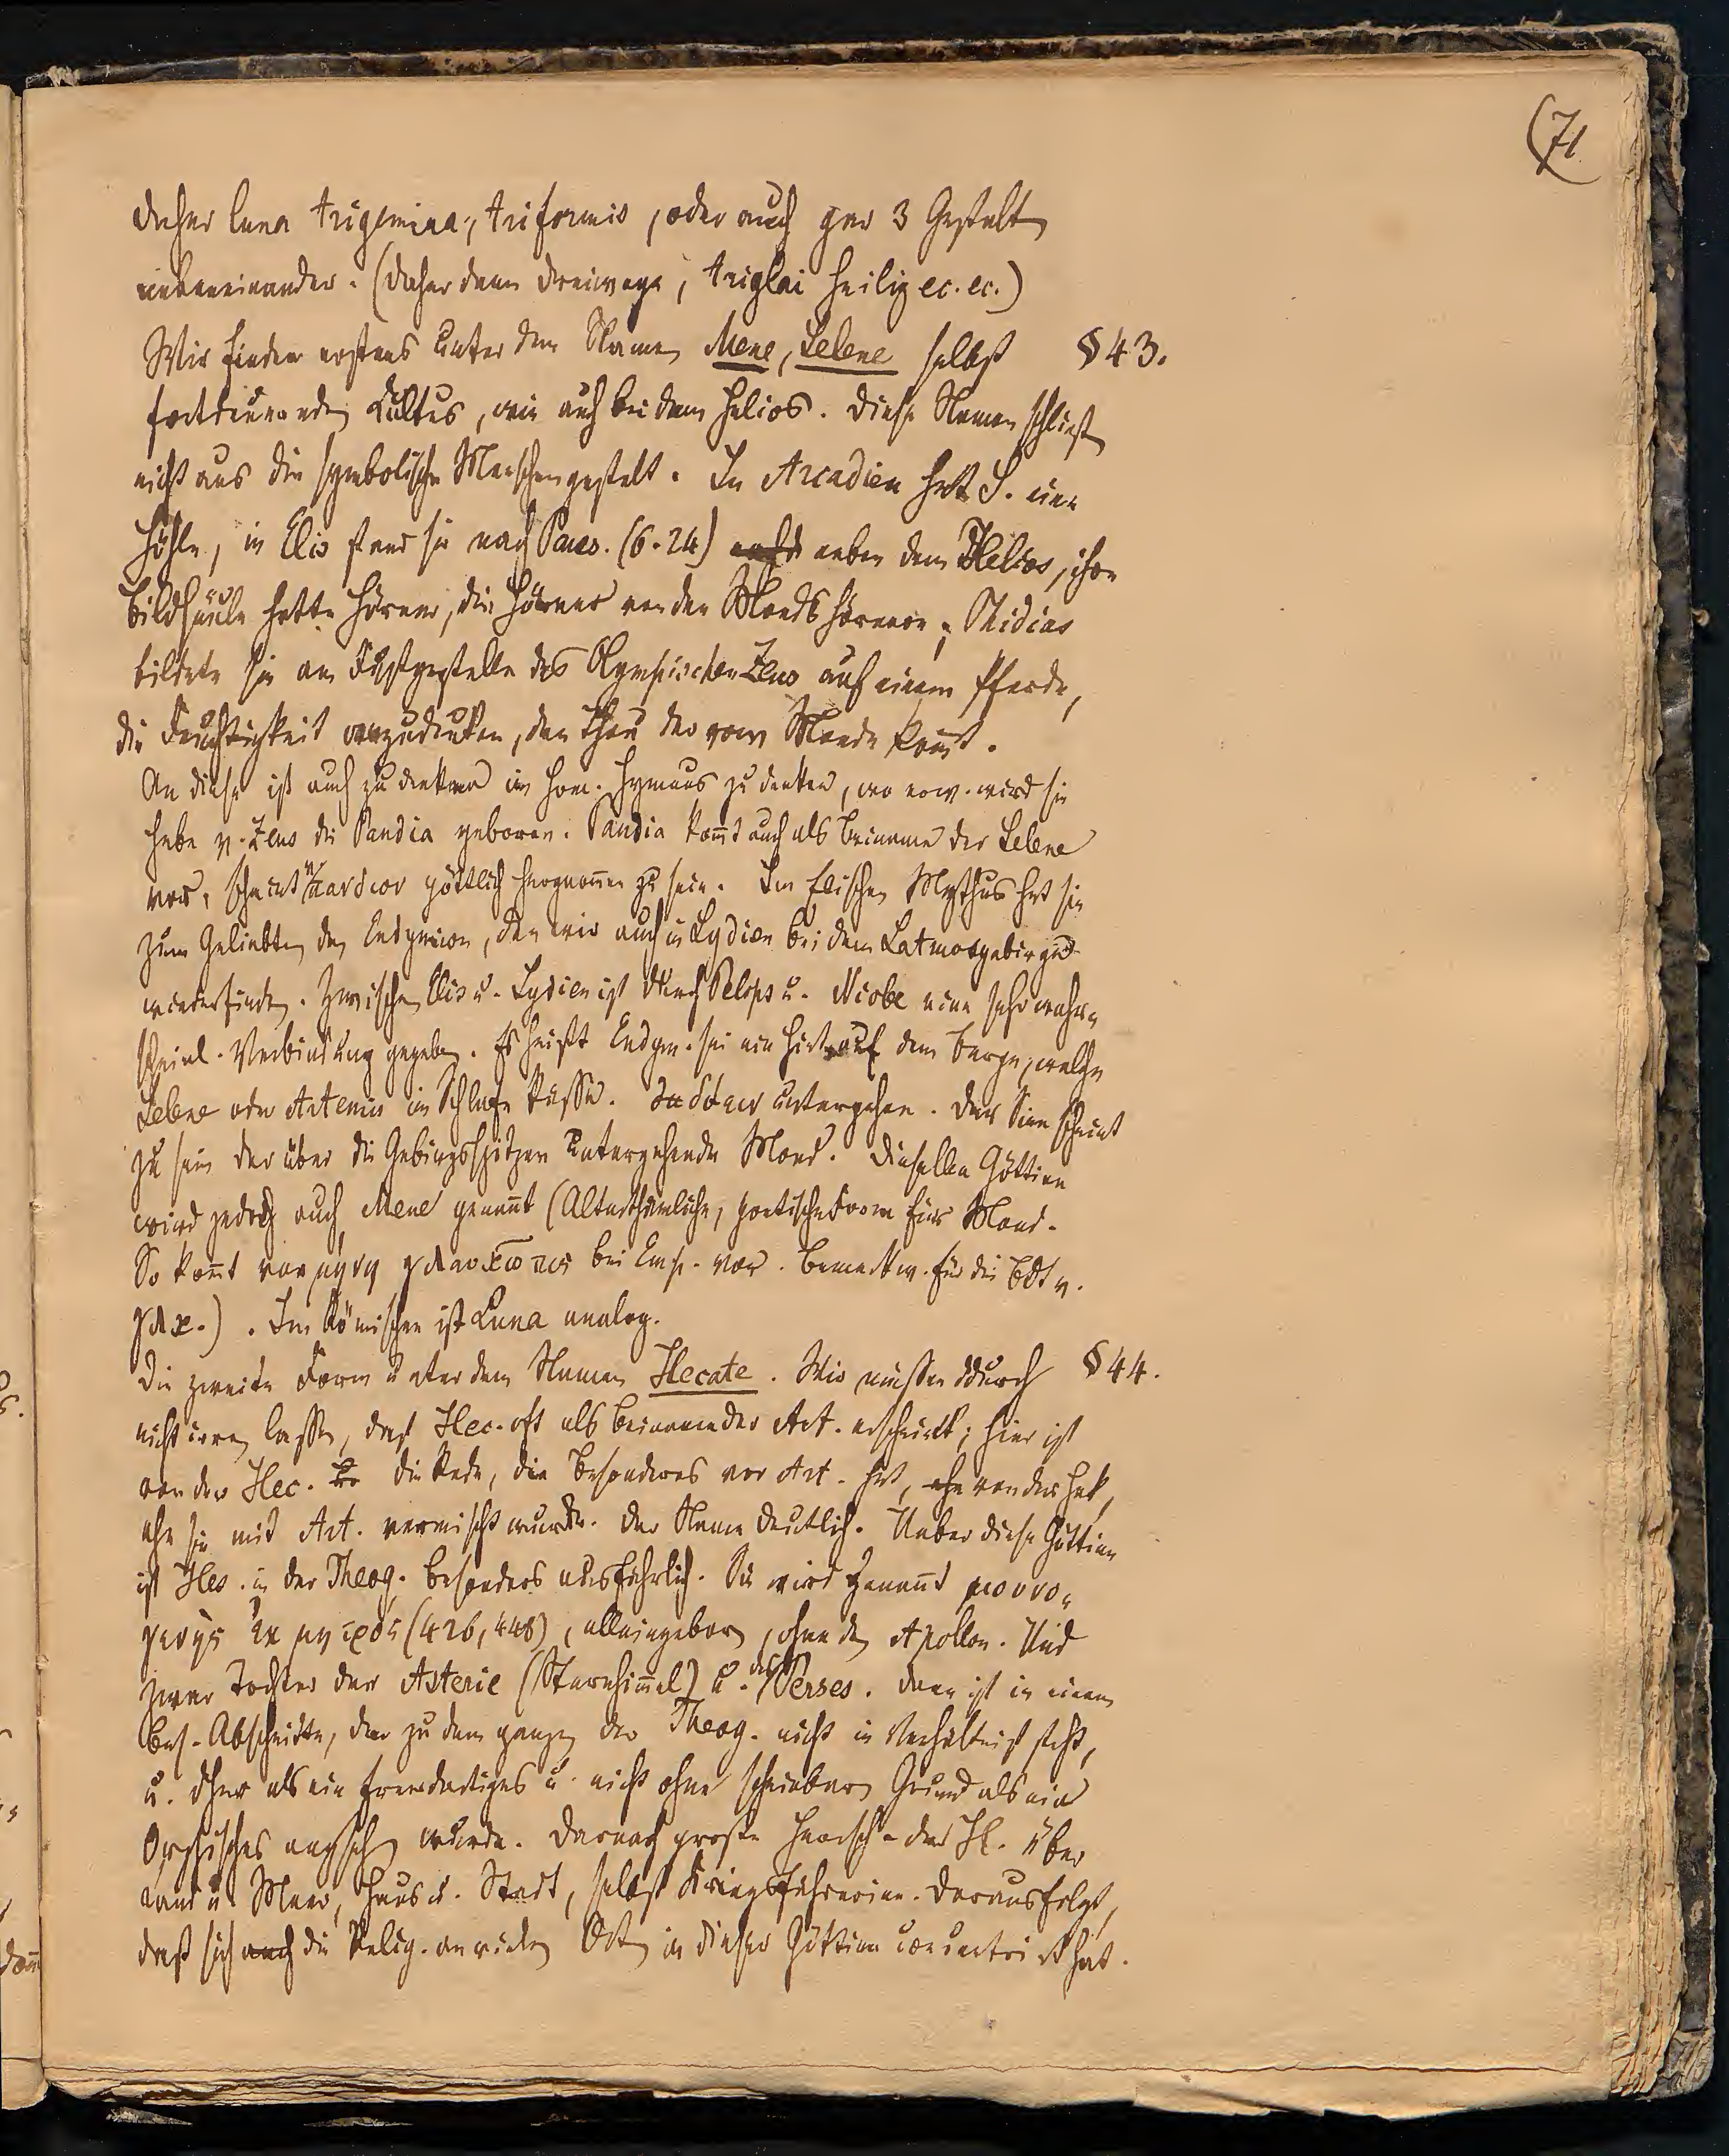 (71
daher luna trigemina, triformis, oder auch gar 3 Gestalten
nebeneinander. (Daher dann Dreiwege, triglai heilig ec. ec.)
Wir finden erstens unter dem Namen Mene, Selene selbst § 43.
fortdauernden Cultus, wie auch bei dem Helios. Diese Namen schließen
nicht aus die symbolische Menschengestalt. In Arcadien hatte S. eine
Höhle, in Elis stand sie nach Paus. (6.24) neben dem Helios, ihre
Bildsäule hatte Hörner, die Hörner von den Mondshörnern; Phidias
bildete sie am Fußgestelle des Olympischen Zeus auf einem Pferde,
die Feuchtigkeit anzudeuten, den Thau der vom Monde kommt.
An diese ist auch zu denken im hom. Hymnus zu denken, wo wird sie
habe v. Zeus die Pandia geboren. Pandia kommt auch als Beiname der Selene
vor, scheint πανδιον göttlich hergenommen zu sein. Im Elischen Mythus hat sie
zum Geliebten den Endymion, den wir auch in Lydien bei dem Latmosgebirge
wiederfinden. Zwischen Elis u. Lydien ist durch Pelops u. Niobe eine sehr wahr-
scheinl. Verbindung gegeben. Es heißt Endym. sei ein Hirt auf dem Berge, welchen
Selene oder Artemis im Schlafe küsse. untergehen. Der Sinn scheint
zu sein der über die Gebirgsspitzen untergehende Mond. Dieselbe Göttinn
wird jedoch auch Mene genannt (Alterthümliche, poetische Form für Mond.
So kommt μηνη γλαυκῶπις bei Emp. vor. bemerkw. für die Bdt v.
γλκ.). Im Römischen ist Luna analog.
Die zweite Form unter dem Namen Hecate. Wir müssen ddurch § 44.
nicht irren lassen, daß Hec. oft als Beiname der Art. erscheint; hier ist
von der Hec. die Rede, die Besonderes vor Art. hat, ehe von der Hek,
ehe sie mit Art. vermischt wurde. Der Name deutlich. Ueber diese Göttinn
ist Hes. in der Theog. besonders ausführlich. Sie wird genannt μουνο-
γενὴς ἐκ μητρὸς (426, 448), alleingeboren, ohne den Apollon. Und
zwar Tochter der Asterie (Sternhimmel) u. des Perses. Dann ist in einem
bes. Abschnitte, der zu dem ganzen der Theog. nicht in Verhältniß steht,
u. dher als ein fremdartiges u. nicht ohne scheinbaren Grund als ein
Orphisches angesehen wurde. Darnach große Herrsch. der H. über
Land u. Meer, Haus u. Stadt, selbst Kriegsführerinn. Daraus folgt,
daß sich auch die Relig. an vielen Orten in dieser Göttinn concentrirt hat.